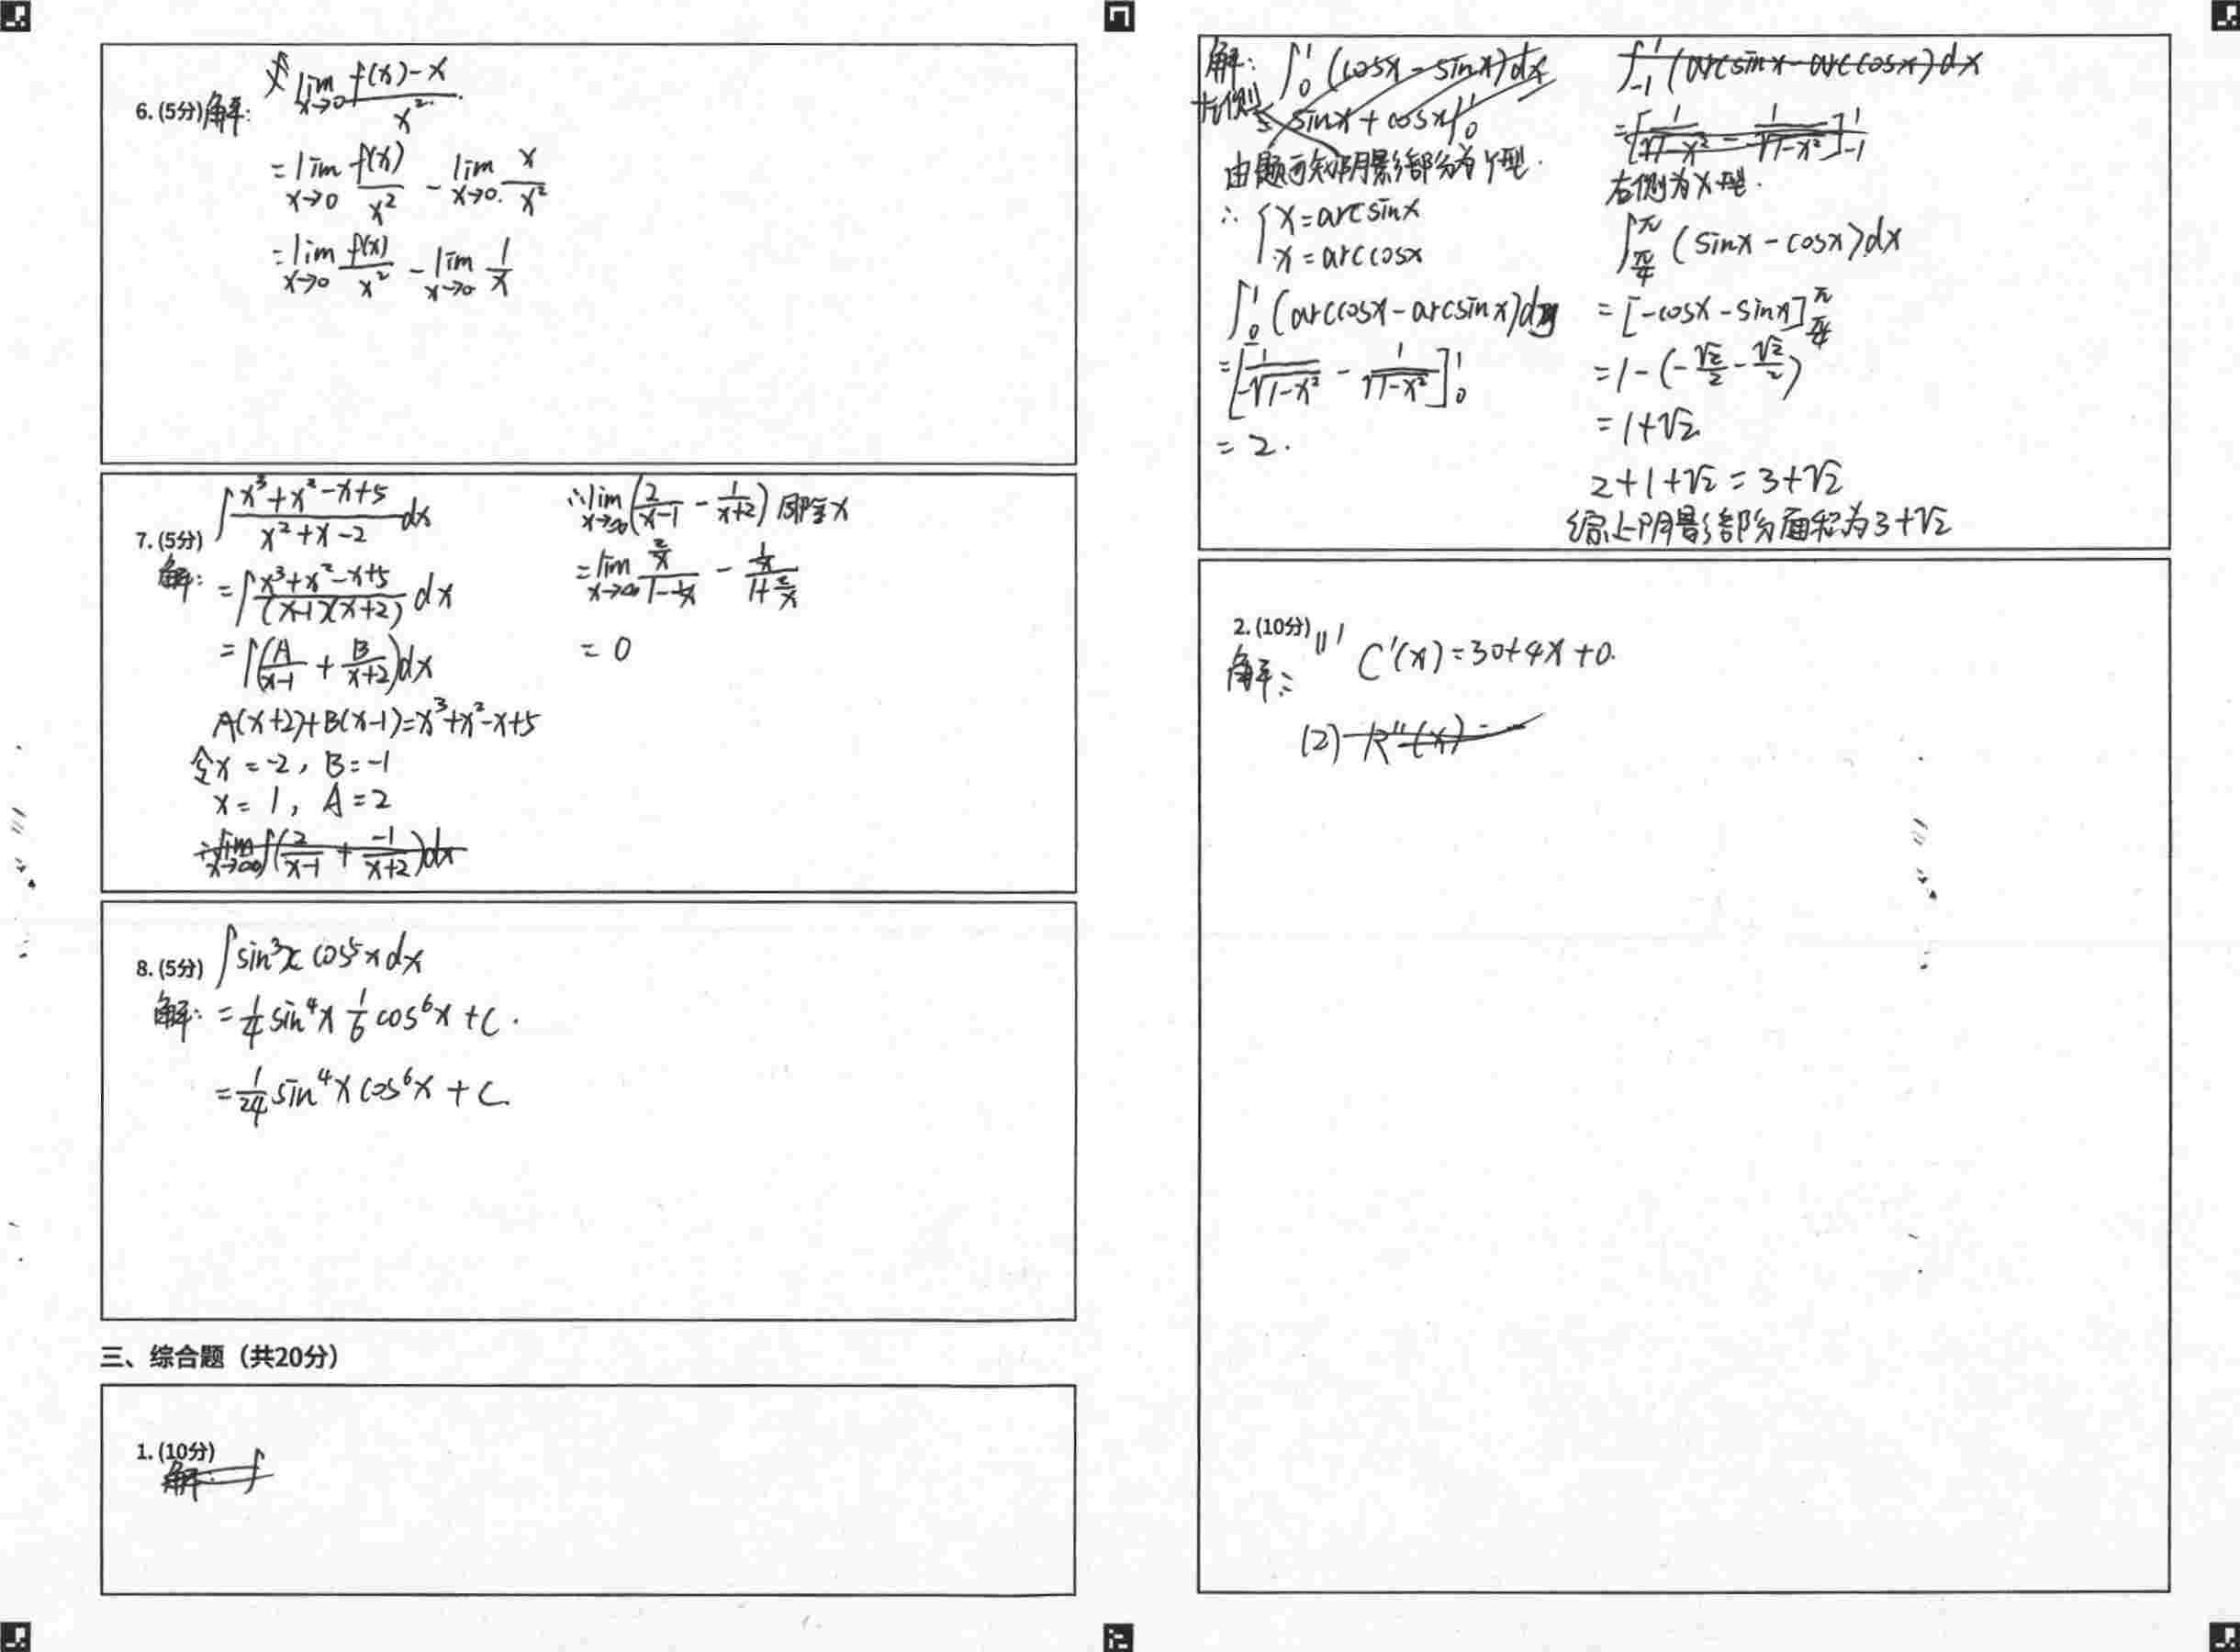 6. (5分) 解: 求 lim x→0 (f(x)-x)/x²
= lim x→0 f(x)/x² - lim x→0 x/x²
= lim x→0 f(x)/x² - lim x→0 1/x
7. (5分) ∫ (x³+x²-x+5)/(x²+x-2) dx
解: = ∫ (x³+x²-x+5)/((x-1)(x+2)) dx
= ∫ (A/(x-1) + B/(x+2)) dx
A(x+2)+B(x-1)=x³+x²-x+5
令x=-2, B=-1
x=1, A=2
∴ lim x→∞ ∫ (2/(x-1) + -1/(x+2)) dx
∴ lim x→∞ (2/(x-1) - 1/(x+2)) 同除x
= lim x→∞ (2/x)/(1-1/x) - (1/x)/(1+2/x)
= 0
8. (5分) ∫ sin³x cos⁵x dx
解: = 1/4 sin⁴x 1/6 cos⁶x + C.
= 1/24 sin⁴x cos⁶x + C
三、综合题（共20分）
1. (10分)
解: ∫
解: ∫₀¹ (cosx - sinx)dx
左侧 = sinx + cosx|₀¹
由题可知阴影部分为Y型.
∴ { x=arcsinx
x=arccosx
∫₀¹ (arccosx - arcsinx)dy
= [1/(-√(1-x²)) - 1/√(1-x²)]₀¹
= 2.
∫₋₁¹ (arcsinx - arccosx)dx
= [1/√(1-x²) - 1/√(1-x²)]₋₁¹
右侧为X型.
∫_{π/4}^{π} (sinx - cosx)dx
= [-cosx - sinx]_{π/4}^{π}
= 1-(-√2/2 - √2/2)
= 1+√2
2+1+√2 = 3+√2
综上阴影部分面积为3+√2
2. (10分) (1) C'(x)=30+4x+0.
解:
(2) R''(x) =